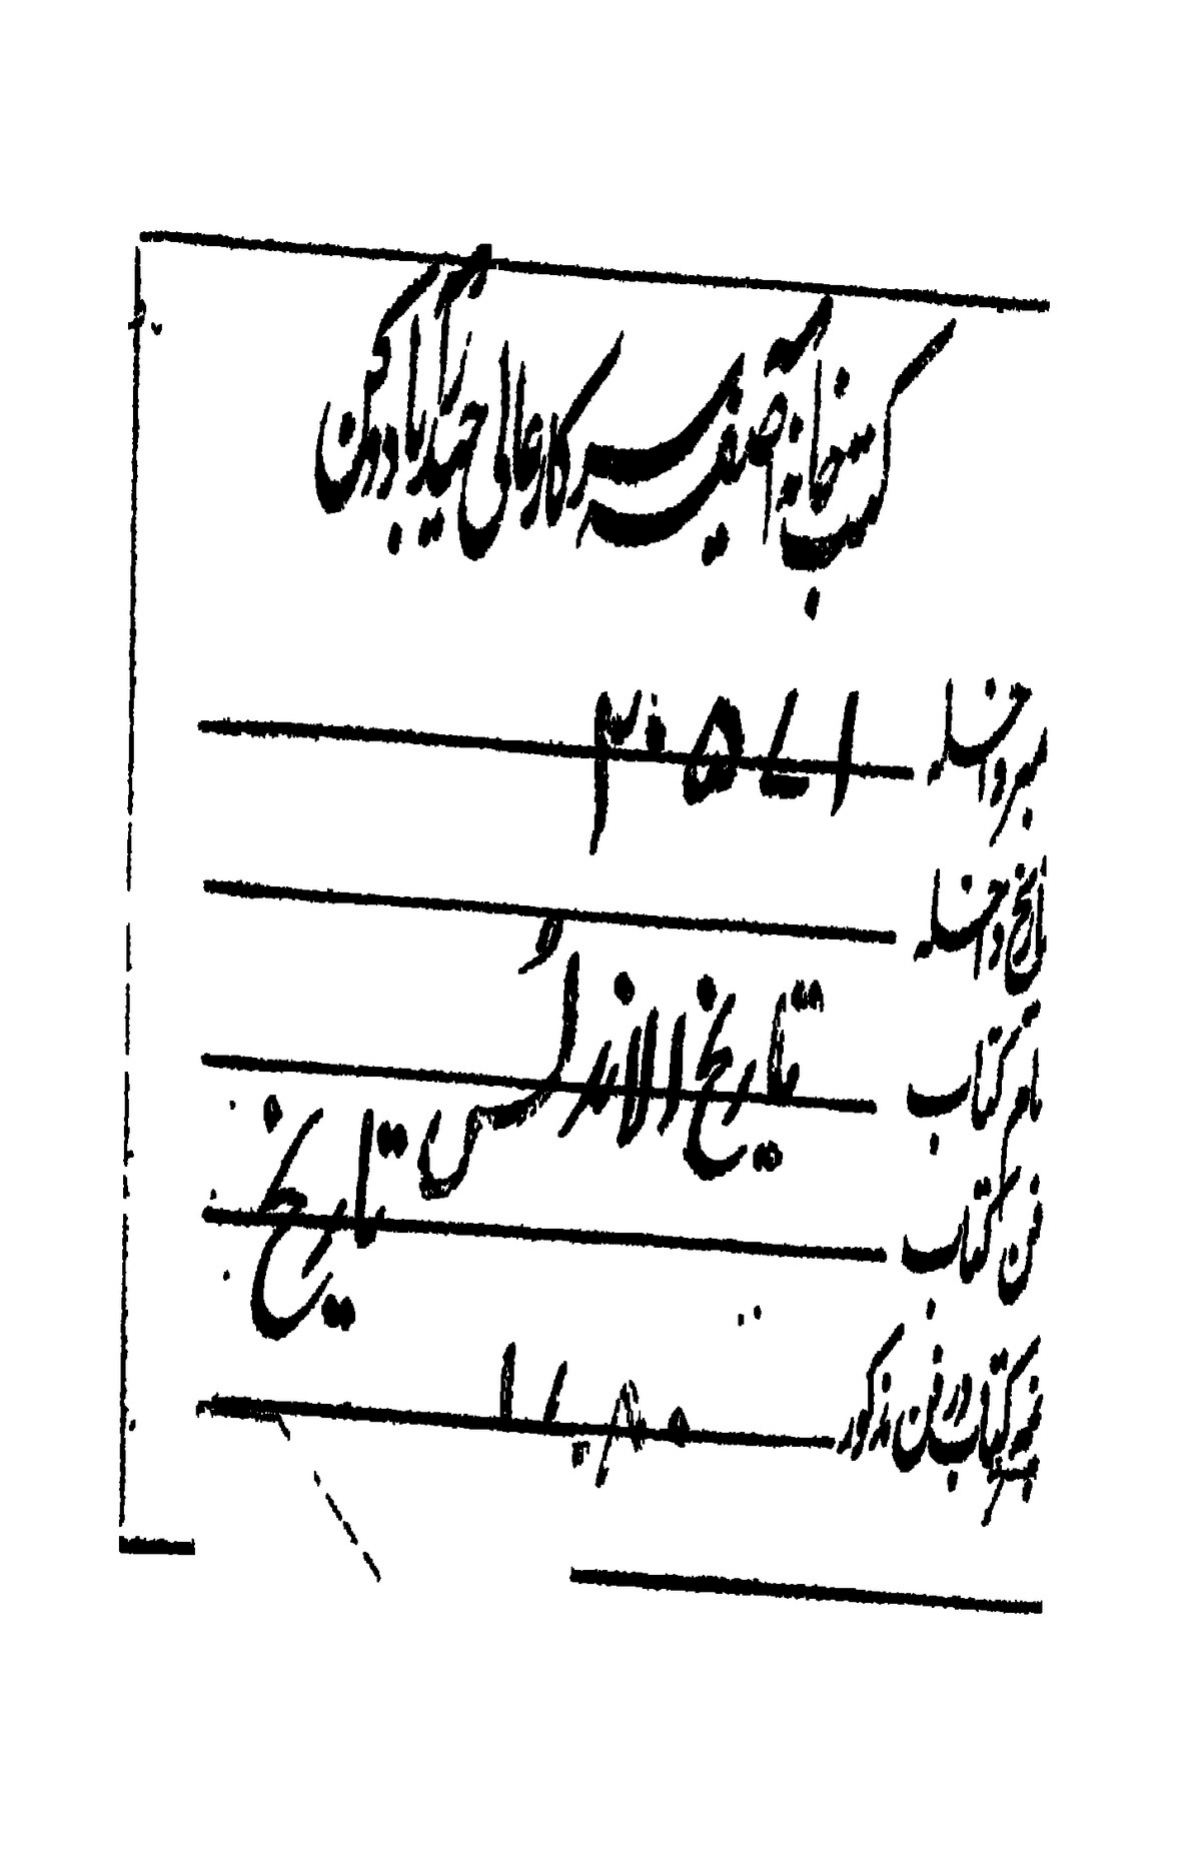 کتب خانہ آصفیہ سرکار عالی حیدرآباد دکن
نمبر داخلہ
تاریخ داخلہ
نام کتاب تاریخ الاندلس
فن کتاب تاریخ
نمبر کتاب در فن مذکور